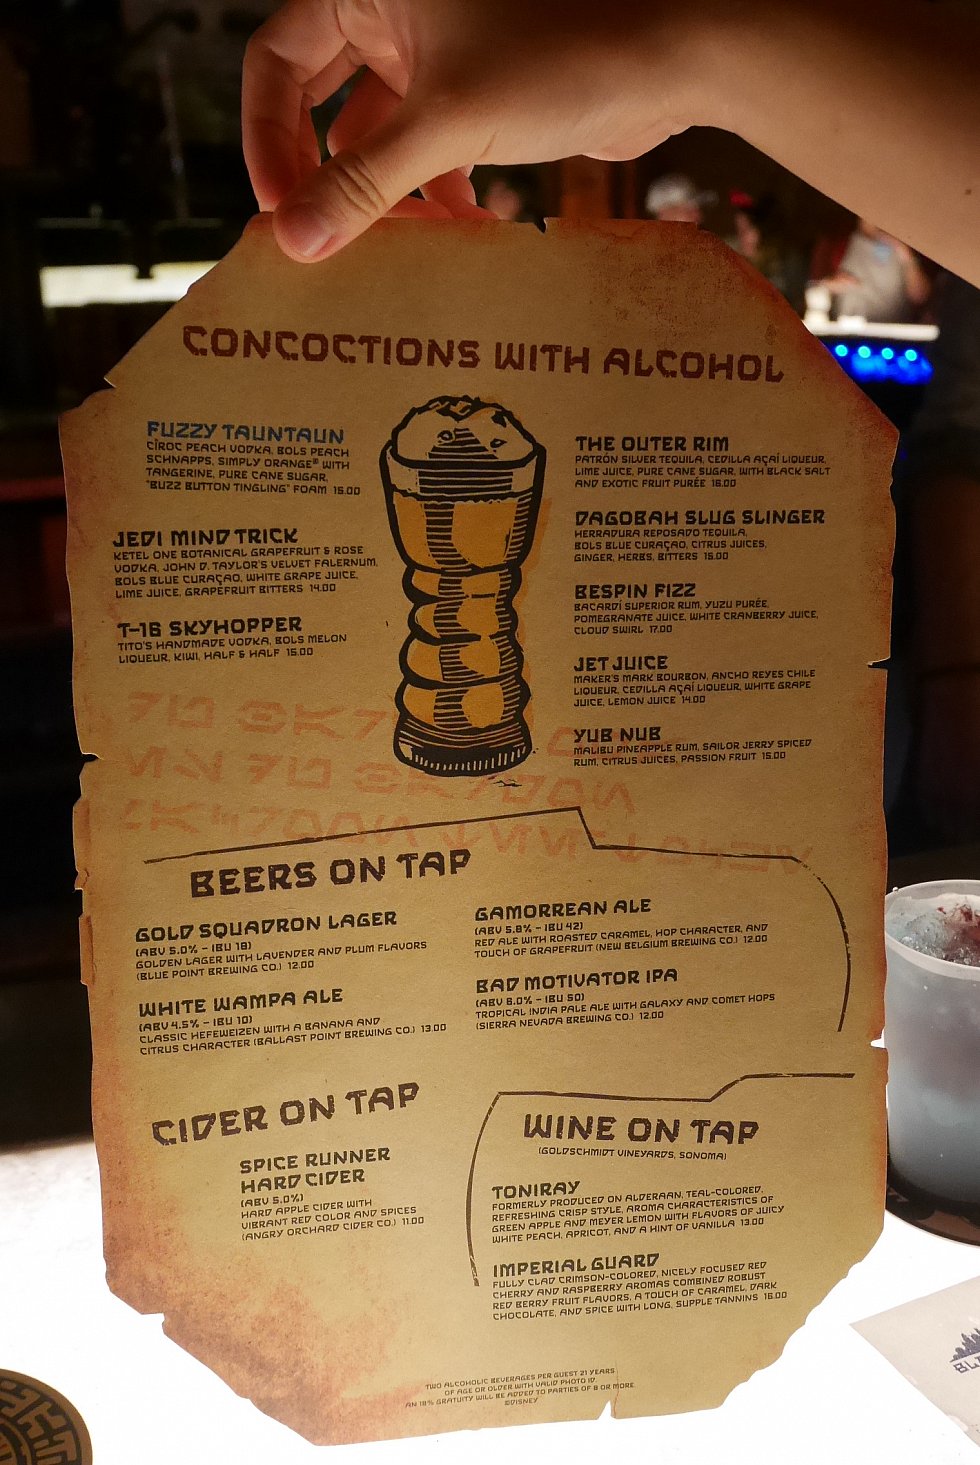 CONCOCTIONS WITH ALCOHOL
FUZZY TAUNTAUN
CÎROC PEACH VODKA, BOLS PEACH
SCHNAPPS, SIMPLY ORANGE® WITH
TANGERINE, PURE CANE SUGAR,
"BUZZ BUTTON TINGLING" FOAM 15.00
JEDI MIND TRICK
KETEL ONE BOTANICAL GRAPEFRUIT & ROSE
VODKA, JOHN D. TAYLOR'S VELVET FALERNUM,
BOLS BLUE CURAÇAO, WHITE GRAPE JUICE,
LIME JUICE, GRAPEFRUIT BITTERS 14.00
T-16 SKYHOPPER
TITO'S HANDMADE VODKA, BOLS MELON
LIQUEUR, KIWI, HALF & HALF 15.00
THE OUTER RIM
PATRÓN SILVER TEQUILA, CEDILLA AÇAÍ LIQUEUR,
LIME JUICE, PURE CANE SUGAR, WITH BLACK SALT
AND EXOTIC FRUIT PURÉE 16.00
DAGOBAH SLUG SLINGER
HERRADURA REPOSADO TEQUILA,
BOLS BLUE CURAÇAO, CITRUS JUICES,
GINGER, HERBS, BITTERS 16.00
BESPIN FIZZ
BACARDÍ SUPERIOR RUM, YUZU PURÉE,
POMEGRANATE JUICE, WHITE CRANBERRY JUICE,
CLOUD SWIRL 17.00
JET JUICE
MAKER'S MARK BOURBON, ANCHO REYES CHILE
LIQUEUR, CEDILLA AÇAÍ LIQUEUR, WHITE GRAPE
JUICE, LEMON JUICE 14.00
YUB NUB
MALIBU PINEAPPLE RUM, SAILOR JERRY SPICED
RUM, CITRUS JUICES, PASSION FRUIT 15.00
BEERS ON TAP
GOLD SQUADRON LAGER
(ABV 5.0% – IBU 18)
GOLDEN LAGER WITH LAVENDER AND PLUM FLAVORS
(BLUE POINT BREWING CO.) 12.00
WHITE WAMPA ALE
(ABV 4.5% – IBU 10)
CLASSIC HEFEWEIZEN WITH A BANANA AND
CITRUS CHARACTER (BALLAST POINT BREWING CO.) 13.00
GAMORREAN ALE
(ABV 5.8% – IBU 42)
RED ALE WITH ROASTED CARAMEL, HOP CHARACTER, AND
TOUCH OF GRAPEFRUIT (NEW BELGIUM BREWING CO.) 12.00
BAD MOTIVATOR IPA
(ABV 8.0% – IBU 50)
TROPICAL INDIA PALE ALE WITH GALAXY AND COMET HOPS
(SIERRA NEVADA BREWING CO.) 12.00
CIDER ON TAP
SPICE RUNNER
HARD CIDER
(ABV 5.0%)
HARD APPLE CIDER WITH
VIBRANT RED COLOR AND SPICES
(ANGRY ORCHARD CIDER CO.) 11.00
WINE ON TAP
(GOLDSCHMIDT VINEYARDS, SONOMA)
TONIRAY
FORMERLY PRODUCED ON ALDERAAN, TEAL-COLORED,
REFRESHING CRISP STYLE, AROMA CHARACTERISTICS OF
GREEN APPLE AND MEYER LEMON WITH FLAVORS OF JUICY
WHITE PEACH, APRICOT, AND A HINT OF VANILLA 13.00
IMPERIAL GUARD
FULLY CLAD CRIMSON-COLORED, NICELY FOCUSED RED
CHERRY AND RASPBERRY AROMAS COMBINED ROBUST
RED BERRY FRUIT FLAVORS, A TOUCH OF CARAMEL, DARK
CHOCOLATE, AND SPICE WITH LONG, SUPPLE TANNINS 16.00
TWO ALCOHOLIC BEVERAGES PER GUEST 21 YEARS
OF AGE OR OLDER WITH VALID PHOTO ID.
AN 18% GRATUITY WILL BE ADDED TO PARTIES OF 8 OR MORE.
©DISNEY